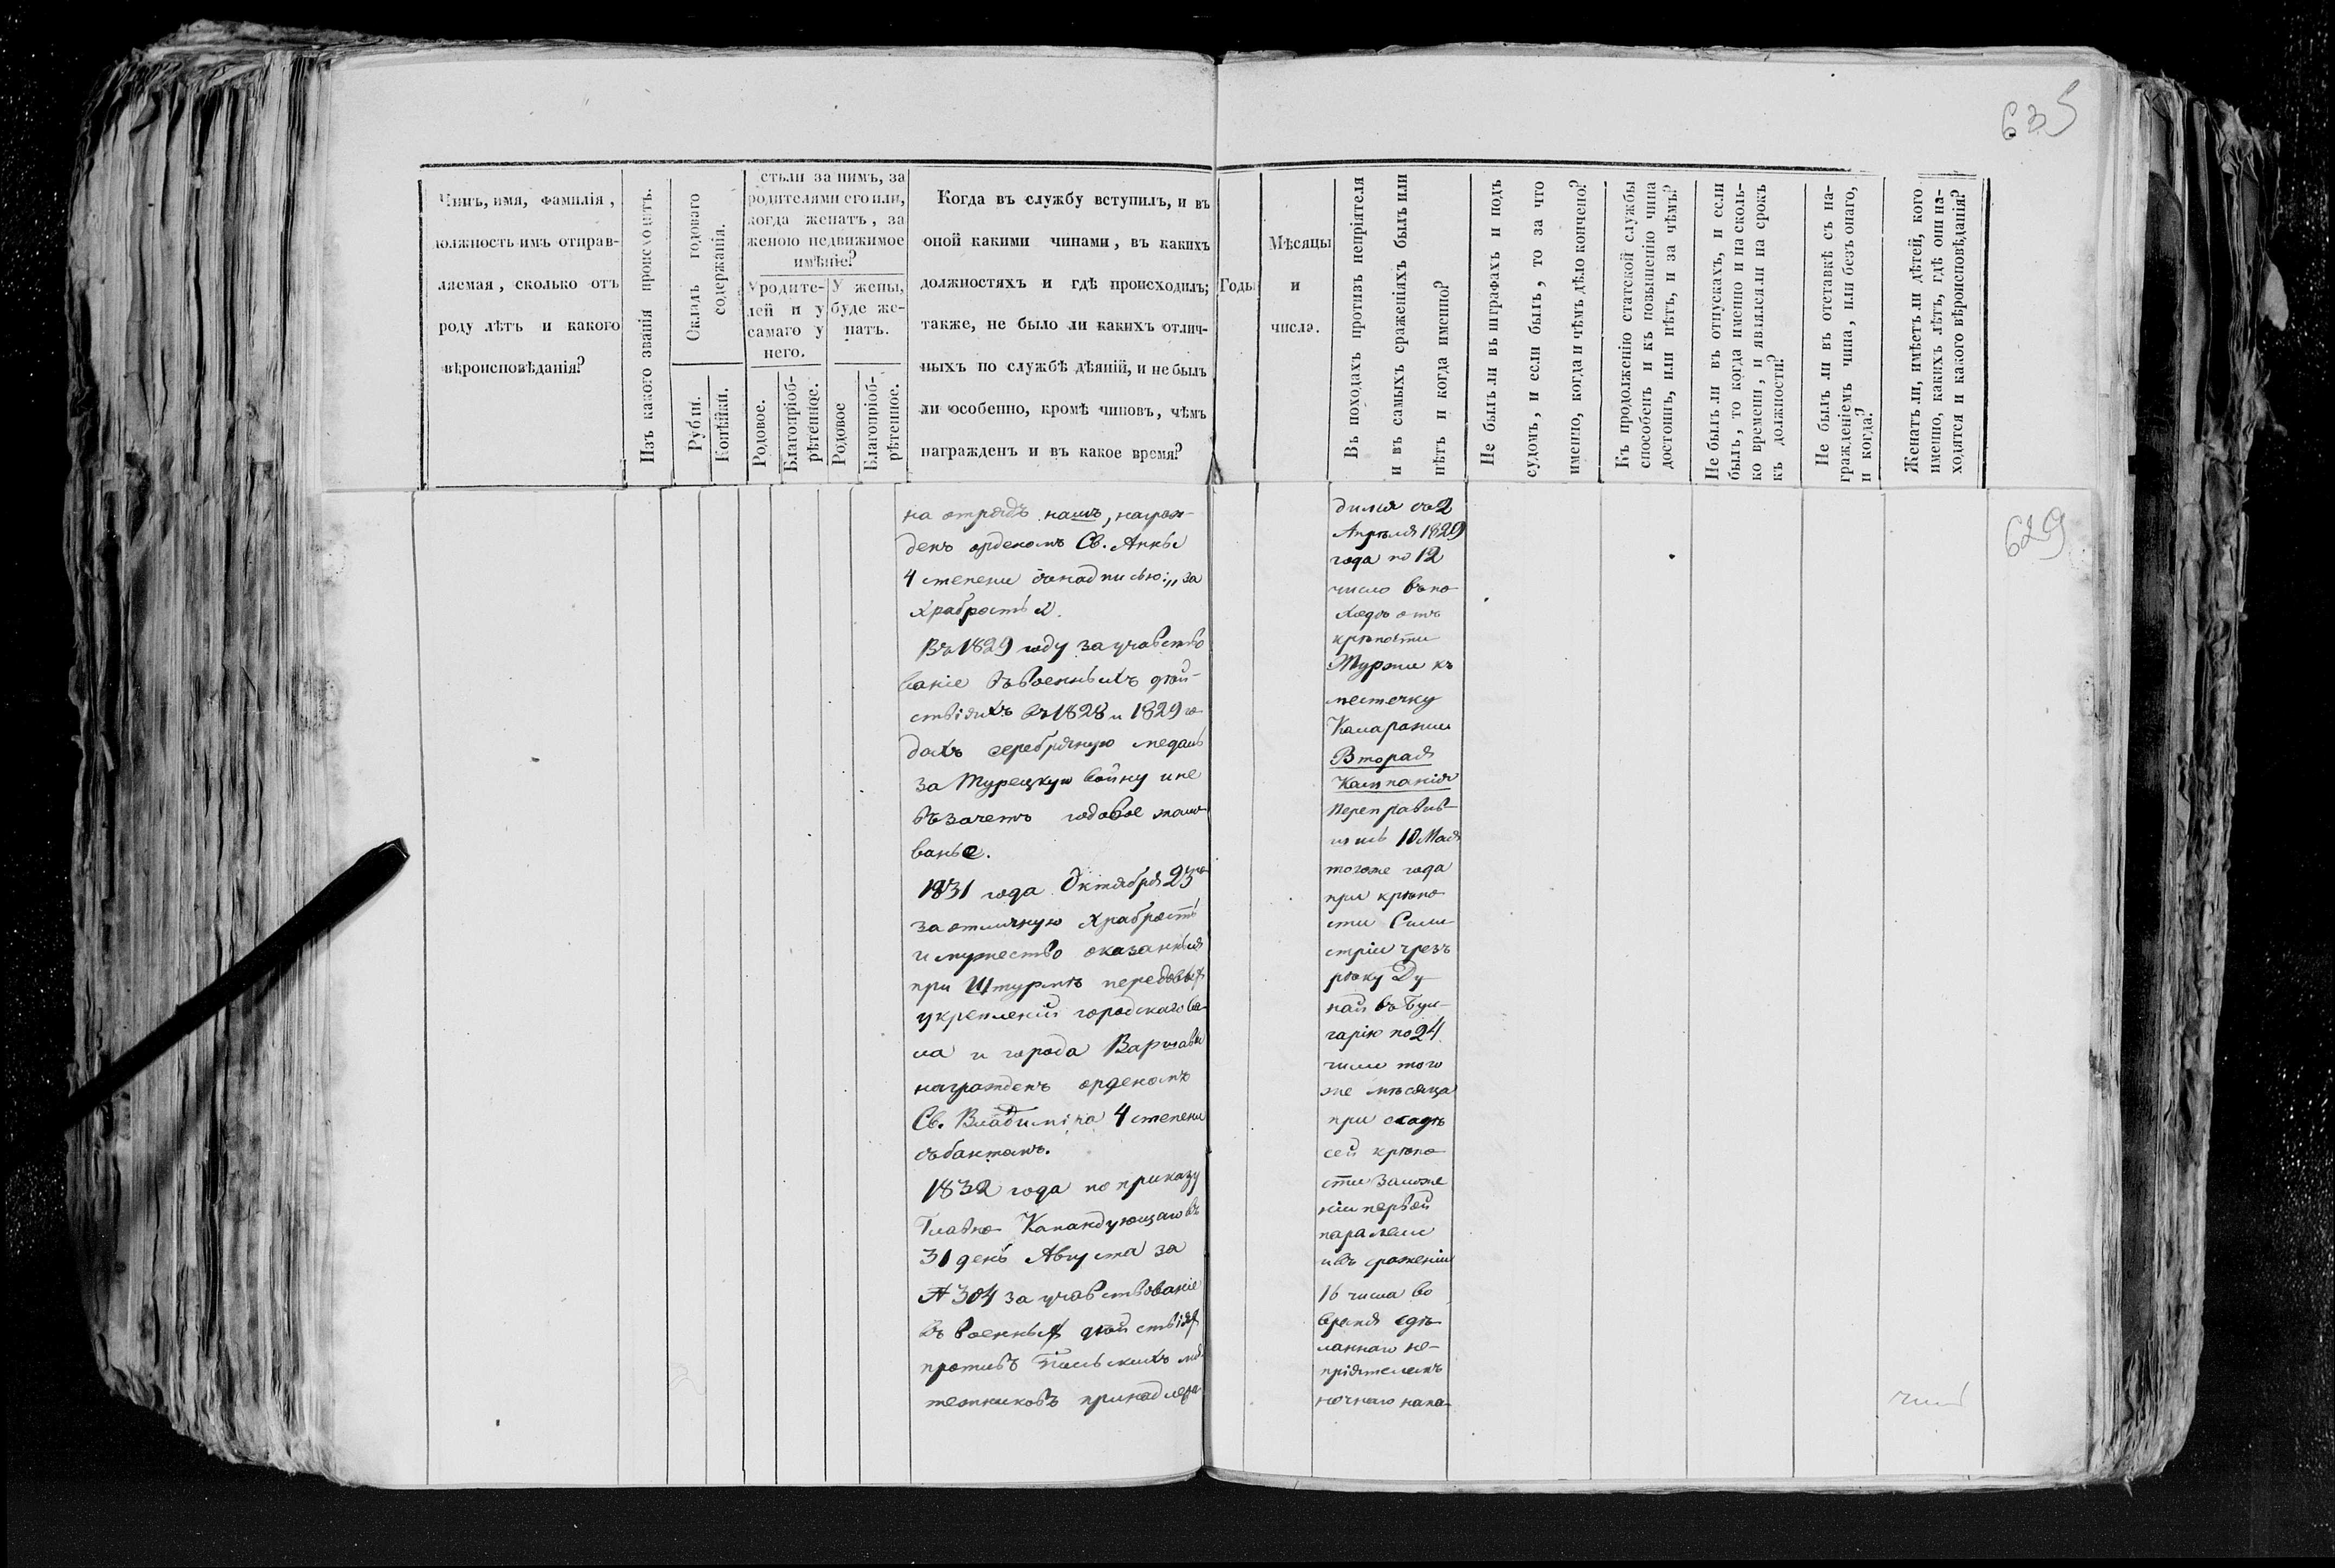 635
Чинъ, имя, фамилія,
должность имъ отправ-
ляемая, сколько отъ
роду лѣтъ и какого
вѣроисповѣданія?
Изъ какого званія происходитъ.
Окладъ годоваго
содержанія.
Рубли.
Копѣйки.
стьли за нимъ, за
родителями его или,
когда женатъ, за
женою недвижимое
имѣніе?
У родите-
лей и у
самаго у
него.
У жены,
буде же-
натъ.
Родовое.
Благопріоб-
рѣтенное.
Родовое
Благопріоб-
рѣтенное.
Когда въ службу вступилъ, и въ
оной какими чинами, въ какихъ
должностяхъ и гдѣ происходилъ;
также, не было ли какихъ отлич-
ныхъ по службѣ дѣяній, и не былъ
ли особенно, кромѣ чиновъ, чѣмъ
награжденъ и въ какое время?
Годы
Мѣсяцы
и
числа.
Въ походахъ противъ непріятеля
и въ самыхъ сраженіяхъ былъ или
нѣтъ и когда именно?
Не былъ ли въ штрафахъ и подъ
судомъ, и если былъ, то за что
именно, когда и чѣмъ дѣло кончено?
Къ продолженію статской службы
способенъ и къ повышенію чина
достоинъ, или нѣтъ, и за чѣмъ?
Не былъ ли въ отпускахъ, и если
былъ, то когда именно и на сколь-
ко времени, и явился ли на срокъ
къ должности?
Не былъ ли въ отставкѣ съ на-
гражденіемъ чина, или безъ онаго,
и когда?
Женатъ ли, имѣетъ ли дѣтей, кого
именно, какихъ лѣтъ, гдѣ они на-
ходятся и какого вѣроисповѣданія?
на отрядъ нашъ, награж-
денъ орденомъ Св. Анны
4 степени съ надписью: „за
храбрость".
Въ 1829 году за участво
ваніе въ военныхъ дѣй-
ствіяхъ въ 1828 и 1829 го
дахъ серебряную медаль
за Турецкую войну и не
въ зачетъ годовое жало
ванье.
1831 года Октября 23го
за отличную храбрость
и мужество оказанныя
при Штурмѣ передовых
укрепленій городскаго ва-
ла и города Варшавы
награжденъ орденомъ
Св. Владиміра 4 степени
съ бантомъ.
1832 года по приказу
Главно Командующаго въ
31 день Августа за
№ 304 за участвованіе
въ военных дѣйствіях
противъ Польскихъ мя-
тежниковъ принадлежа-
дился съ 2
Апрѣля 1829
года по 12
число въ по
ходѣ отъ
крѣпости
Туржи къ
местечку
Каларашъ
Вторая
Кампанія
Переправив-
шись 10 Мая
того же года
при крѣпо
сти Сили-
стріи чрезъ
рѣку Ду-
най въ Бул-
гарію по 24
число того
же мѣсяца
при осадѣ
сей крѣпо-
сти заложе
ніи первой
паралели
и въ сраженіи
16 числа во
время сдѣ-
ланнаго не-
пріятелемъ
ночнаго напа-
629